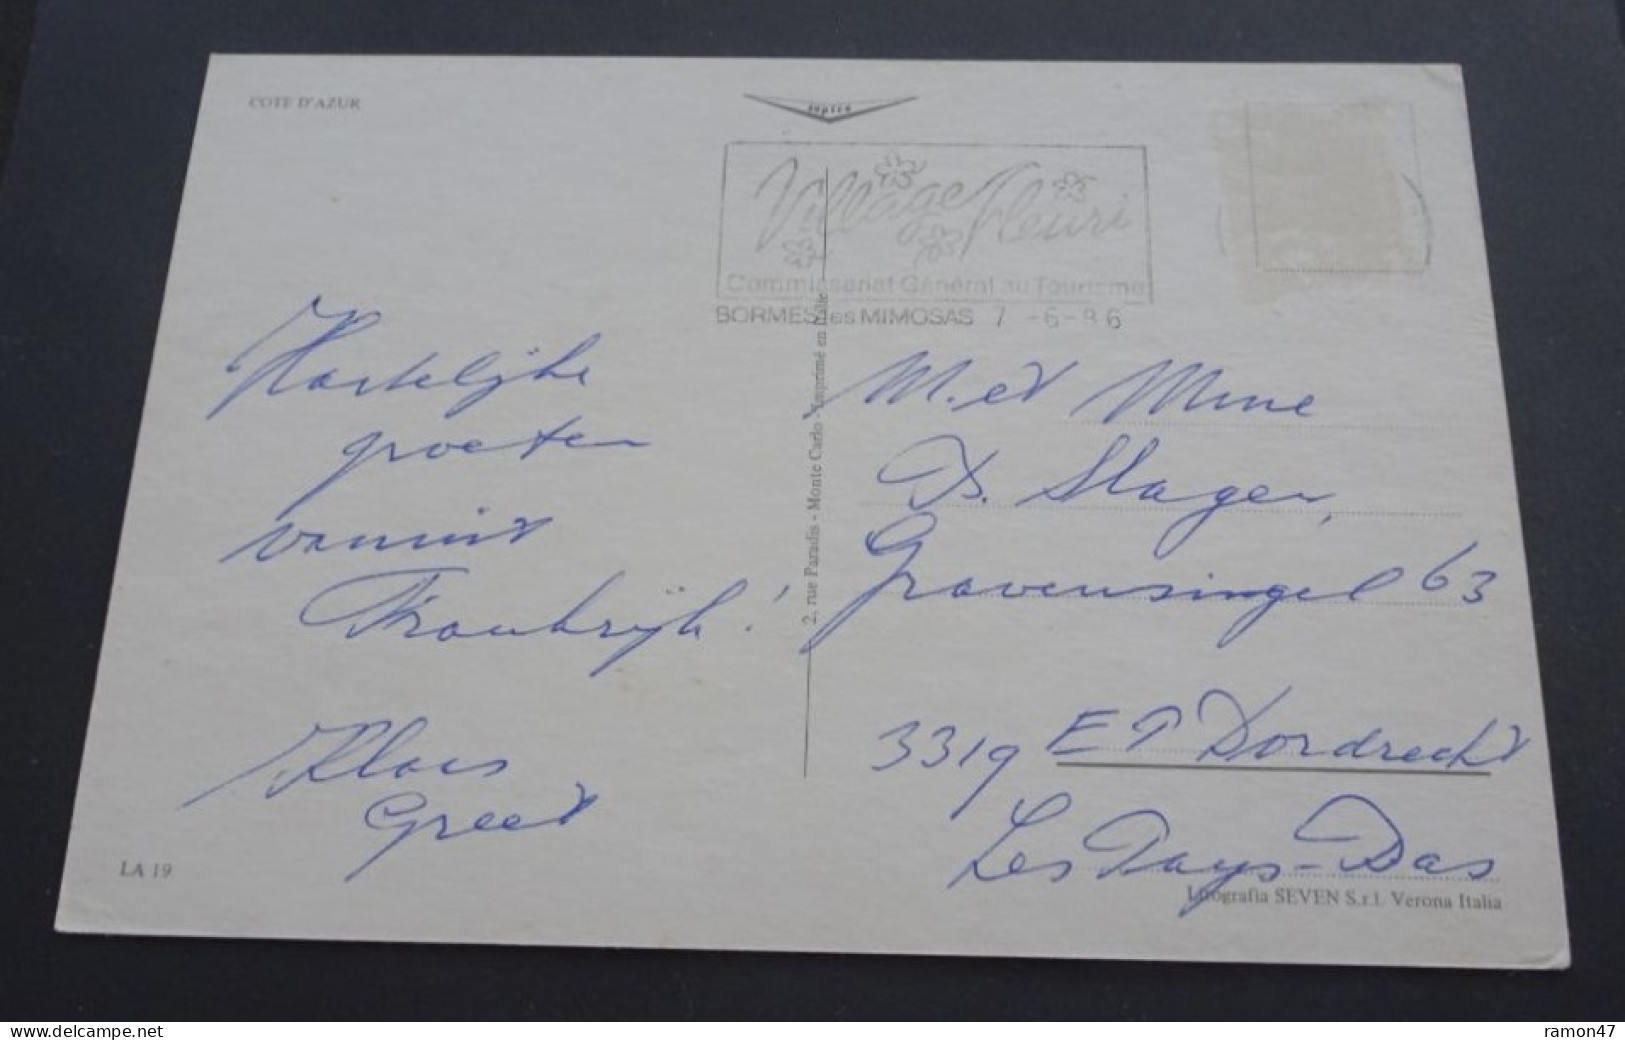 COTE D'AZUR
sopico
Village Fleuri
Commissariat Général au Tourisme
BORMES les MIMOSAS 7 -6-86
Hartelijke
groeten
vanuit
Frankrijk!
Klaas
Greet
2, rue Paradis - Monte Carlo - Imprimé en Italie
M. et Mme
D. Slager,
Gravensingel 63
3319 ET Dordrecht
Les Pays-Bas
LA 19
Litografia SEVEN S.r.l. Verona Italia
www.delcampe.net
ramon47